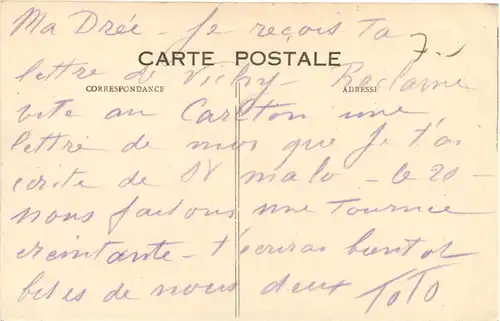 Ma Drée - Je reçois Ta
7.
CARTE POSTALE
lettre de Vichy - Réclame
CORRESPONDANCE
ADRESSE
vite au Carlton une
lettre de moi que Je t'ai
écrite de St malo - le 20 -
nous faisons une Tournée
éreintante - t'écrirai bientot
bises de nous deux TOTO